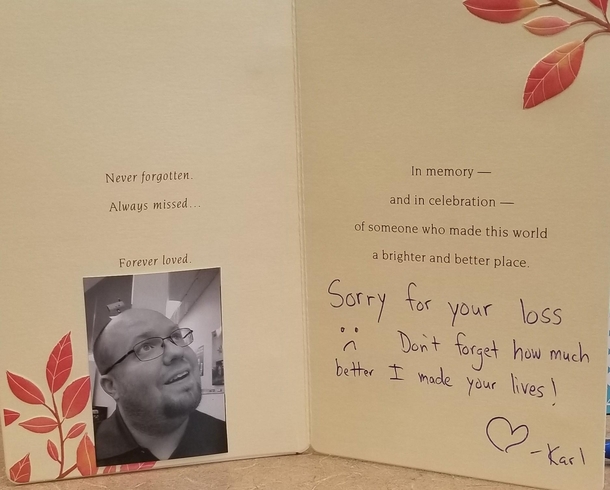 Never forgotten.
Always missed...
Forever loved.
In memory —
and in celebration —
of someone who made this world
a brighter and better place.
Sorry for your loss
:( Don't forget how much
better I made your lives!
♡ -Karl